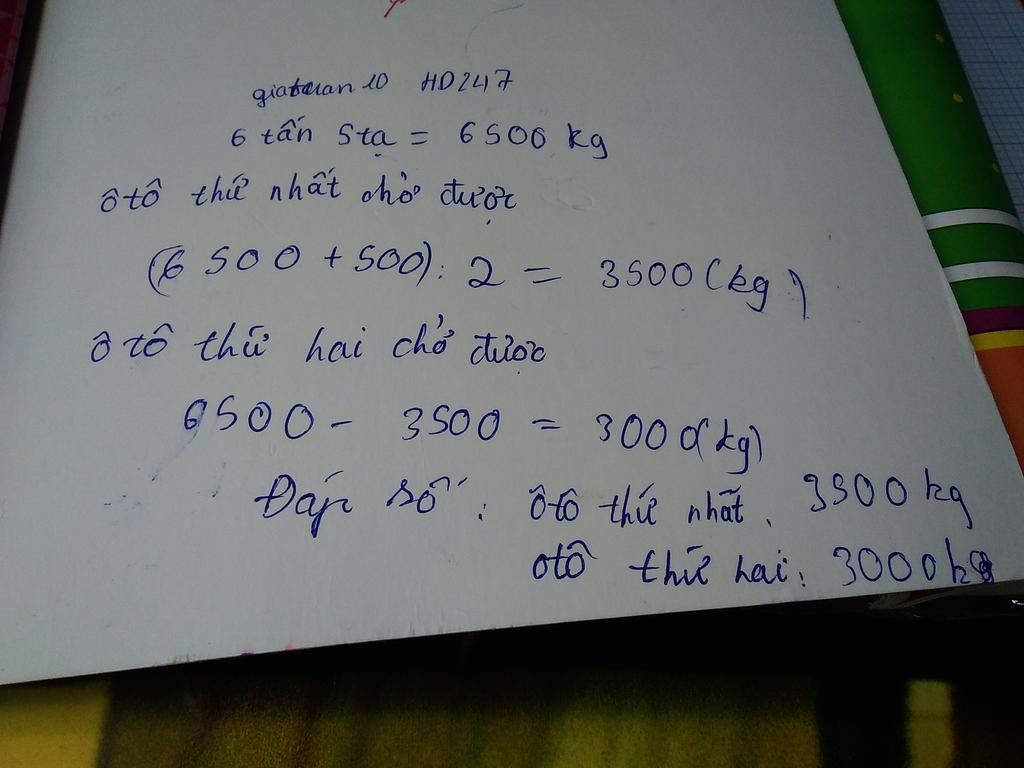 giatuan10 HD247
6 tấn 5tạ = 6500 kg
ôtô thứ nhất chở được
(6 500 + 500) : 2 = 3500 (kg)
ô tô thứ hai chở được
6500 - 3500 = 3000 (kg)
Đáp số : ôtô thứ nhất. 3500 kg
otô thứ hai: 3000 kg